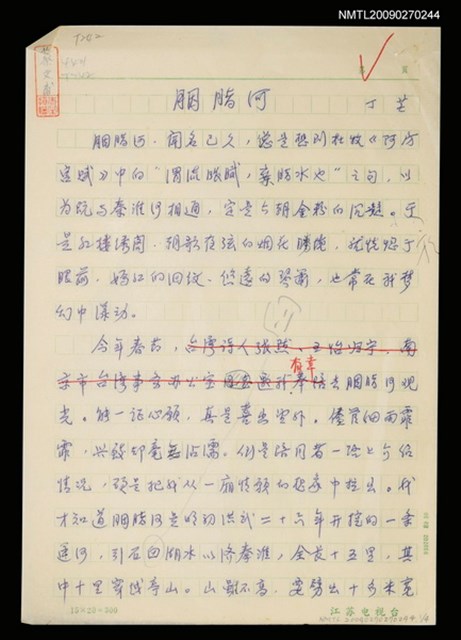 NMTL20090270244
胭脂河
丁芒
胭脂河,闻名已久,总是想到杜牧《阿房
宫赋》中的“渭流涨腻,弃脂水也”之句,以
为既与秦淮河相通,定是六朝金粉的沉淀。于
是红楼绣阁、朝歌夜弦的烟花胜境,就恍惚于
眼前,的回纹、悠远的琴韵,也常在我梦
幻中漾动。
今年春节,台湾诗人张默、王恰归宁,南
京市台湾事务办公室邀我有幸奉陪去胭脂河观
光。能一证心愿,真是喜出望外。尽管细雨霏
霏,兴致却毫无沾濡。倒是陪同者一路上介绍
情况,硬是把我从一厢情愿的想象中拉出。我
才知道胭脂河是明初洪武二十六年开挖的一条
运河,引石臼湖水以济秦淮,全长十五里,其
中十里穿越岑山。山虽不高,要劈出十多米宽
15×20=300
江苏电视台
NMTL20090270244